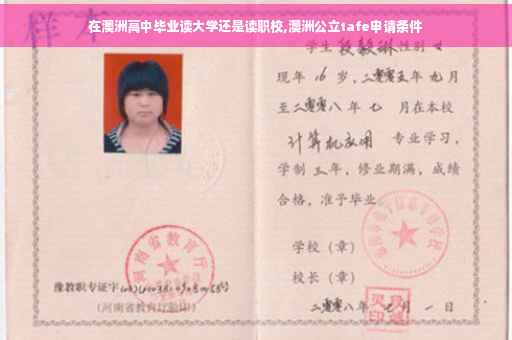 在澳洲高中毕业读大学还是读职校,澳洲公立tafe申请条件
样本
学生 段毅琳 性别 女
现年 16 岁,二零零五年 九月
至二零零八年 七 月在本校
计算机应用 专业学习,
学制 三年,修业期满,成绩
合格,准予毕业
学校(章)
校长(章)
二零零八年 月 一 日
河南省教育厅
豫教职专证字
(河南省教育厅验印)